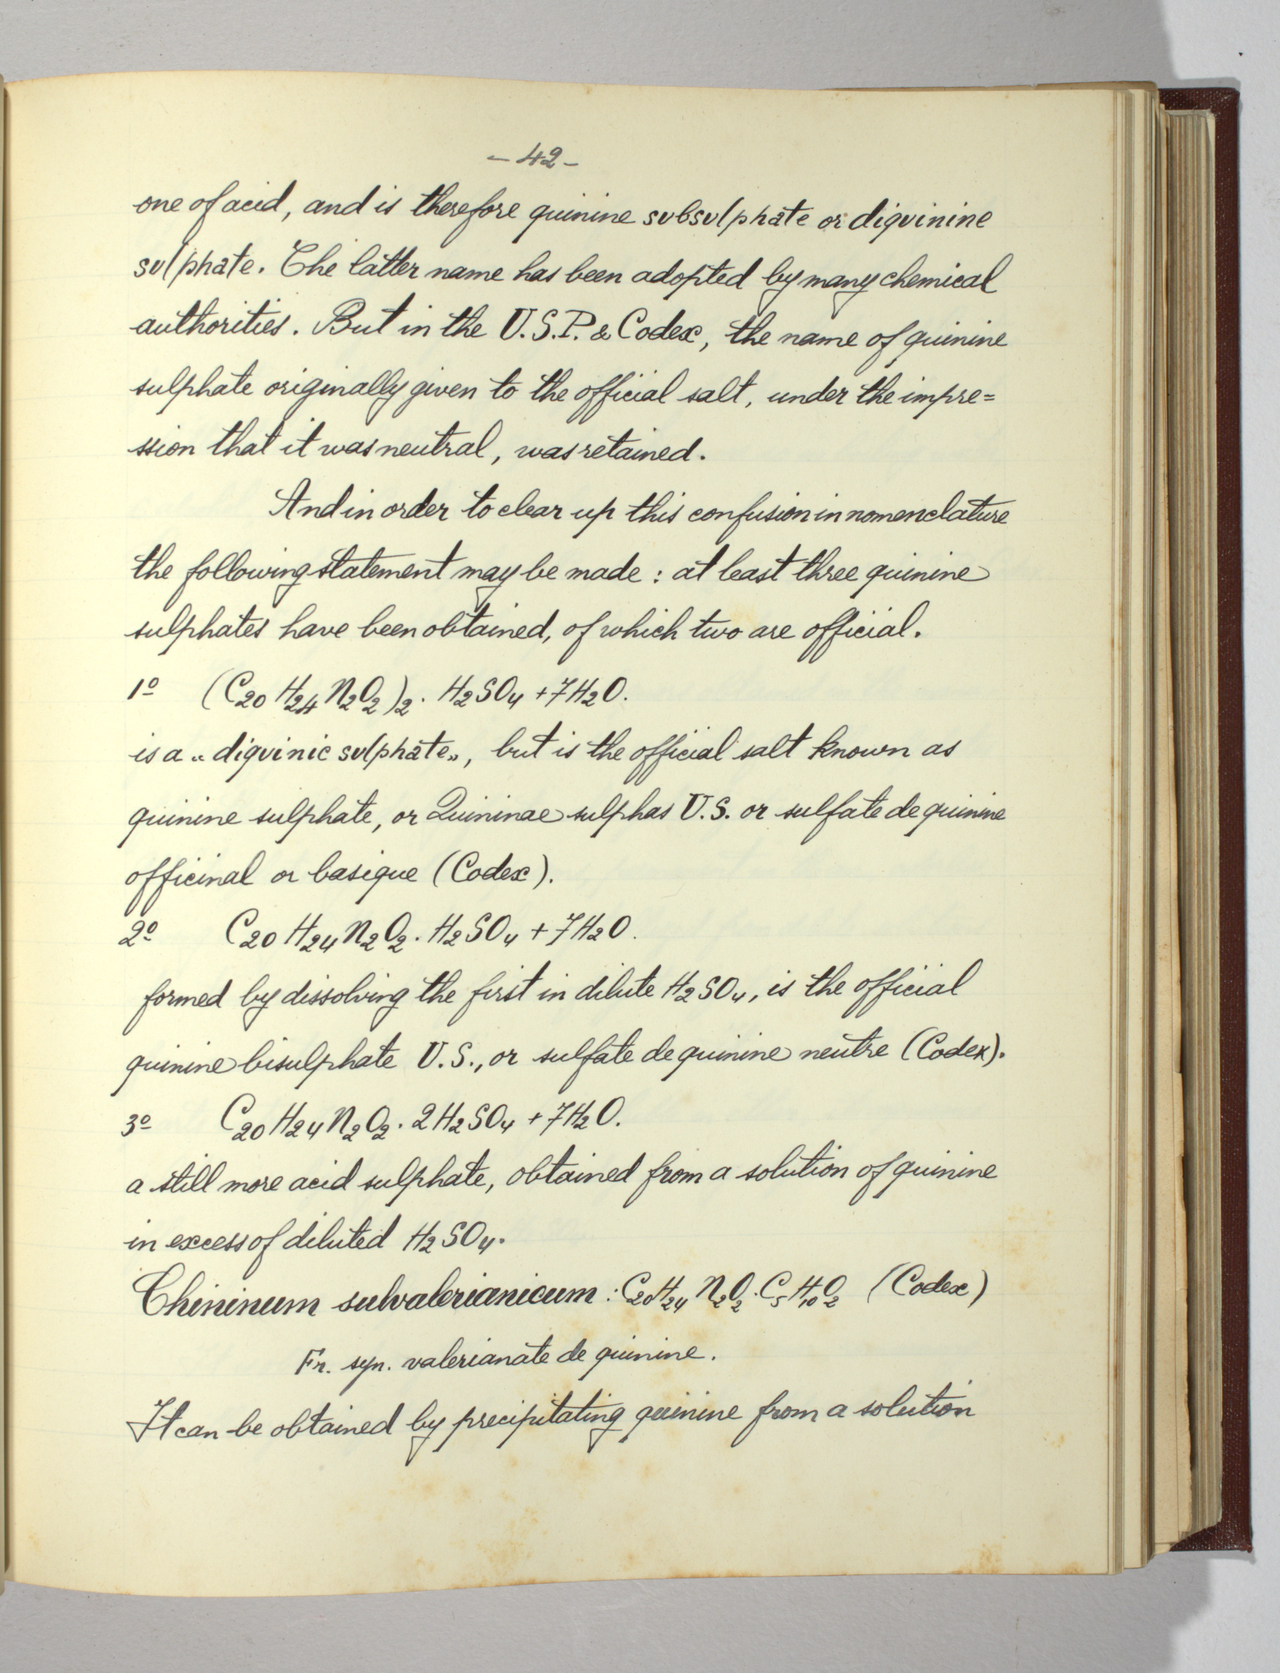 – 42 –
one of acid, and is therefore quinine subsulphate or diquinine
sulphate. The latter name has been adopted by many chemical
authorities. But in the U.S.P. & Codex, the name of quinine
sulphate originally given to the official salt, under the impre=
ssion that it was neutral, was retained.
And in order to clear up this confusion in nomenclature
the following statement may be made : at least three quinine
sulphates have been obtained, of which two are official.
1º (C₂₀H₂₄N₂O₂)₂. H₂SO₄ + 7H₂O.
is a „diquinic sulphate”, but is the official salt known as
quinine sulphate, or Quininae sulphas U.S. or sulfate de quinine
officinal or basique (Codex).
2º C₂₀H₂₄N₂O₂. H₂SO₄ + 7H₂O.
formed by dissolving the first in dilute H₂SO₄, is the official
quinine bisulphate U.S., or sulfate de quinine neutre (Codex).
3º C₂₀H₂₄N₂O₂. 2H₂SO₄ + 7H₂O.
a still more acid sulphate, obtained from a solution of quinine
in excess of diluted H₂SO₄.
Chininum sulvalerianicum : C₂₀H₂₄N₂O₂.C₅H₁₀O₂ (Codex)
Fr. syn. valerianate de quinine.
It can be obtained by precipitating quinine from a solution